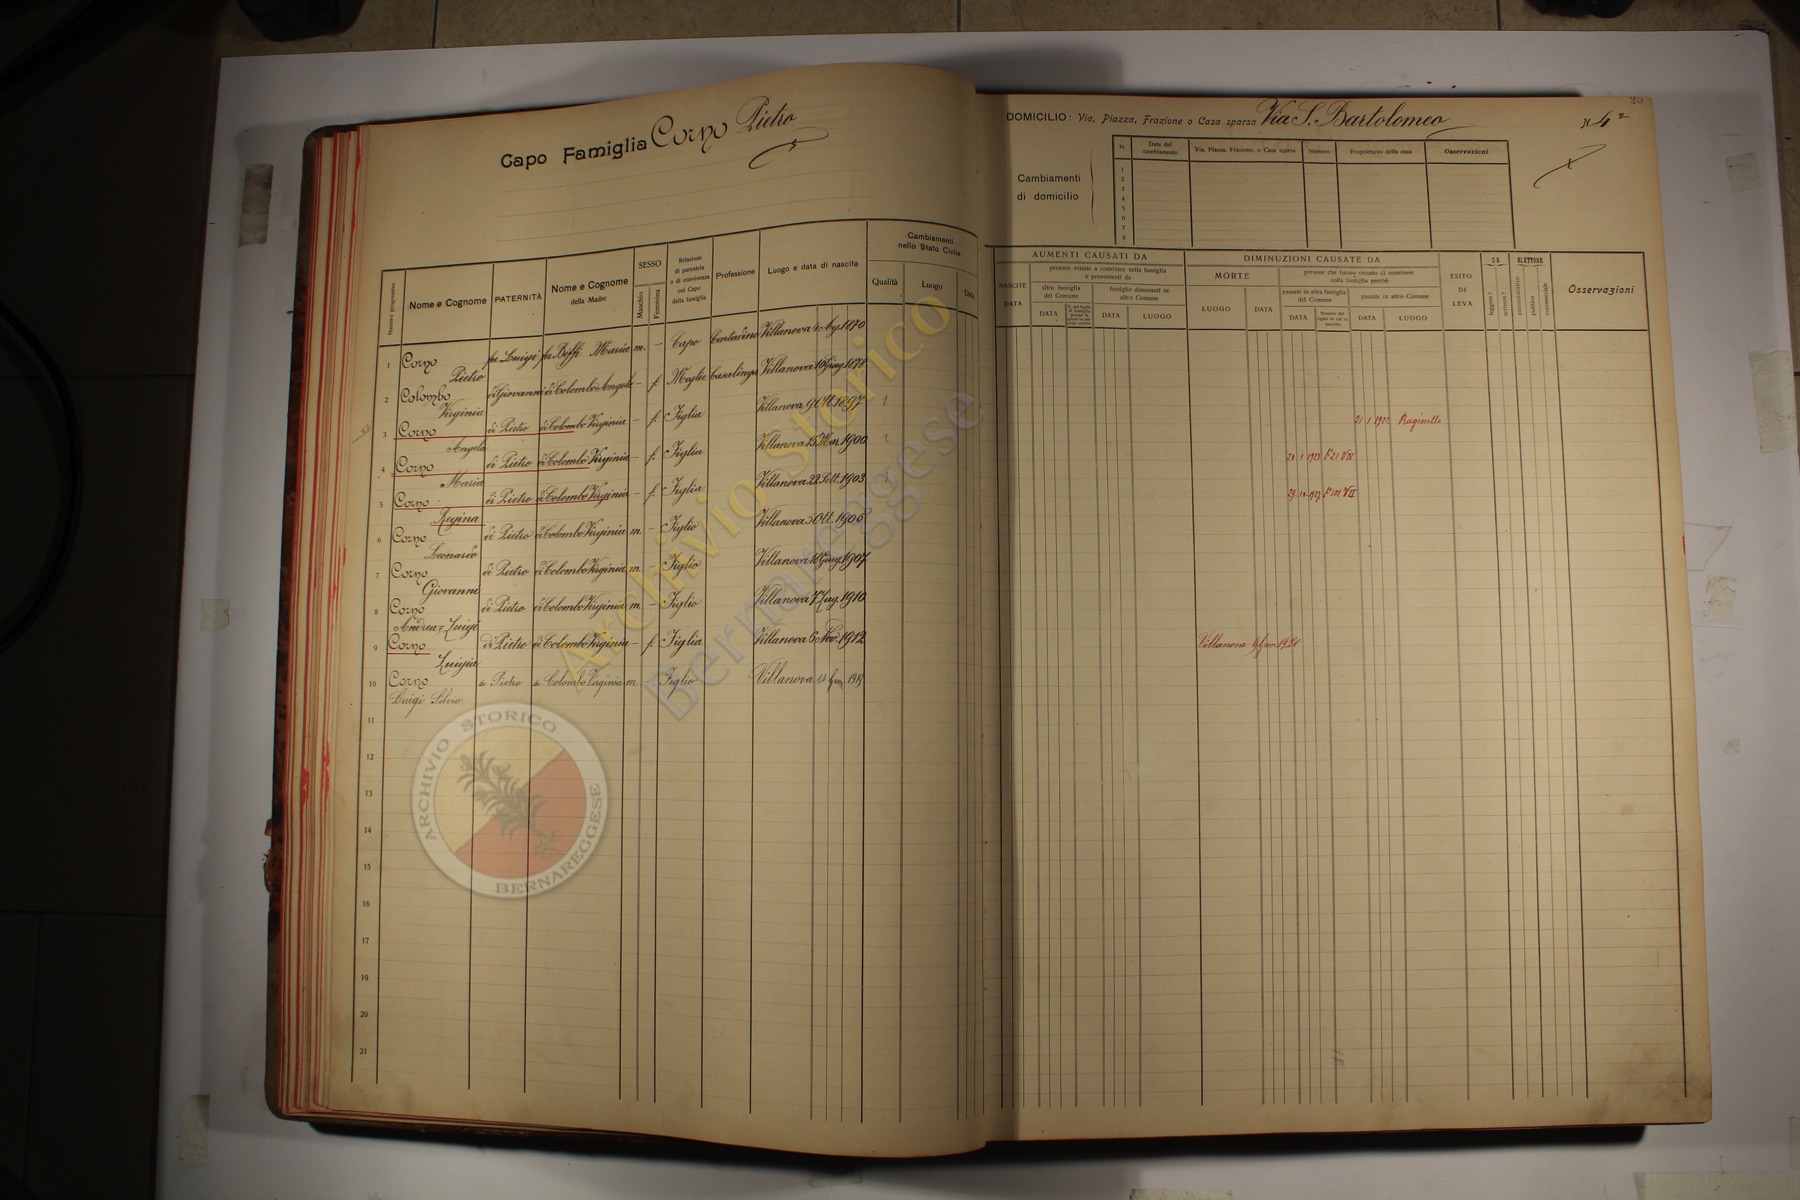 Capo Famiglia Corno Pietro
DOMICILIO: Via, Piazza, Frazione o Casa sparsa Via S. Bartolomeo N 4
25
Cambiamenti di domicilio
N. Data del cambiamento Via, Piazza, Frazione, o Casa sparsa Numero Proprietario della casa Osservazioni
1
2
3
4
5
6
7
8
Numero progressivo Nome e Cognome PATERNITÀ Nome e Cognome della Madre SESSO Maschio Femmina Relazione di parentela o di convivenza col Capo della famiglia Professione Luogo e data di nascita Cambiamenti nello Stato Civile Qualità Luogo Data
AUMENTI CAUSATI DA
NASCITE DATA
persone venute a convivere nella famiglia e provenienti da
altra famiglia del Comune DATA
famiglie dimoranti in altro Comune DATA LUOGO
DIMINUZIONI CAUSATE DA
MORTE LUOGO DATA
persone che hanno cessato di convivere colla famiglia perchè
passate in altra famiglia del Comune DATA
passate in altro Comune DATA LUOGO
ESITO DI LEVA
SA leggere? scrivere?
ELETTORE amministrativo politico commerciale
Osservazioni
1 Corno Pietro fu Luigi fu Biffi Maria m. – Capo Contadino Villanova 1870
2 Colombo Virginia di Giovanni di Colombo Angela – f. Moglie Casalinga Villanova 18 Giug. 1878
3 Corno Angela di Pietro di Colombo Virginia – f. Figlia Villanova 9 Ott. 1897 Ruginello
4 Corno Maria di Pietro di Colombo Virginia – f. Figlia Villanova 15 Mar. 1900
5 Corno Regina di Pietro di Colombo Virginia – f. Figlia Villanova 22 Sett. 1903
6 Corno Leonardo di Pietro di Colombo Virginia m. – Figlio Villanova Ott. 1905
7 Corno Giovanni di Pietro di Colombo Virginia m. – Figlio Villanova 18 Giug. 1907
8 Corno Andrea Luigi di Pietro di Colombo Virginia m. – Figlio Villanova 7 Lug. 1910
9 Corno Luigia di Pietro di Colombo Virginia – f. Figlia Villanova 6 Nov. 1912 Villanova 1920
10 Corno Luigi Silvio di Pietro di Colombo Virginia m. – Figlio Villanova 1919
11
12
13
14
15
16
17
18
19
20
21
Archivio storico
Bernareggese
ARCHIVIO STORICO
BERNAREGGESE